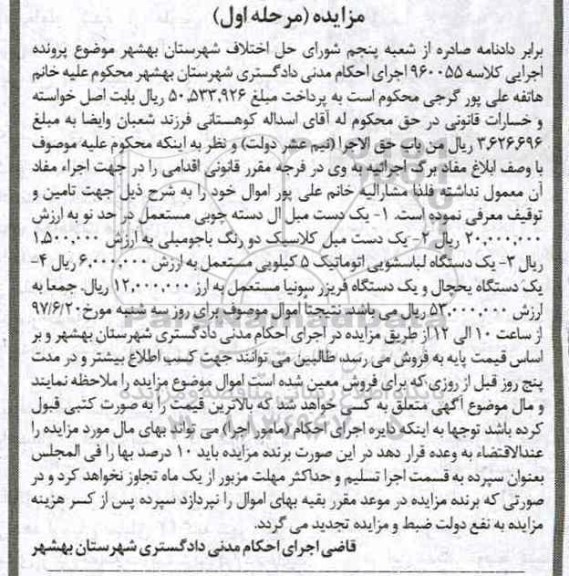 مزایده (مرحله اول)
برابر دادنامه صادره از شعبه پنجم شورای حل اختلاف شهرستان بهشهر موضوع پرونده
اجرایی کلاسه ۹۶۰۰۵۵ اجرای احکام مدنی دادگستری شهرستان بهشهر محکوم علیه خانم
هاتفه علی پور گرجی محکوم است به پرداخت مبلغ ۵۰,۵۳۳,۹۲۶ ریال بابت اصل خواسته
و خسارات قانونی در حق محکوم له آقای اسداله کوهستانی فرزند شعبان وایضا به مبلغ
۳,۶۲۶,۶۹۶ ریال من باب حق الاجرا (نیم عشر دولت) و نظر به اینکه محکوم علیه موصوف
با وصف ابلاغ مفاد برگ اجرائیه به وی در فرجه مقرر قانونی اقدامی را در جهت اجراء مفاد
آن معمول نداشته فلذا مشارالیه خانم علی پور اموال خود را به شرح ذیل جهت تامین و
توقیف معرفی نموده است. ۱- یک دست مبل ال دسته چوبی مستعمل در حد نو به ارزش
۲۰,۰۰۰,۰۰۰ ریال ۲- یک دست مبل کلاسیک دو رنگ باجومبلی به ارزش ۱,۵۰۰,۰۰۰
ریال ۳- یک دستگاه لباسشویی اتوماتیک ۵ کیلویی مستعمل به ارزش ۶,۰۰۰,۰۰۰ ریال ۴-
یک دستگاه یحچال و یک دستگاه فریزر سونیا مستعمل به ارز ۱۲,۰۰۰,۰۰۰ ریال. جمعا به
ارزش ۵۳,۰۰۰,۰۰۰ ریال می باشد. نتیجتاً اموال موصوف برای روز سه شنبه مورخ ۹۷/۶/۲۰
از ساعت ۱۰ الی ۱۲ از طریق مزایده در اجرای احکام مدنی دادگستری شهرستان بهشهر و بر
اساس قیمت پایه به فروش می رسد، طالبین می توانند جهت کسب اطلاع بیشتر و در مدت
پنج روز قبل از روزی که برای فروش معین شده است اموال موضوع مزایده را ملاحظه نمایند
و مال موضوع آگهی متعلق به کسی خواهد شد که بالاترین قیمت را به صورت کتبی قبول
کرده باشد توجها به اینکه دایره اجرای احکام (مامور اجرا) می تواند بهای مال مورد مزایده را
عندالاقتضاء به وعده قرار دهد در این صورت برنده مزایده باید ۱۰ درصد بها را فی المجلس
بعنوان سپرده به قسمت اجرا تسلیم و حداکثر مهلت مزبور از یک ماه تجاوز نخواهد کرد و در
صورتی که برنده مزایده در موعد مقرر بقیه بهای اموال را نپردازد سپرده پس از کسر هزینه
مزایده به نفع دولت ضبط و مزایده تجدید می گردد.
قاضی اجرای احکام مدنی دادگستری شهرستان بهشهر